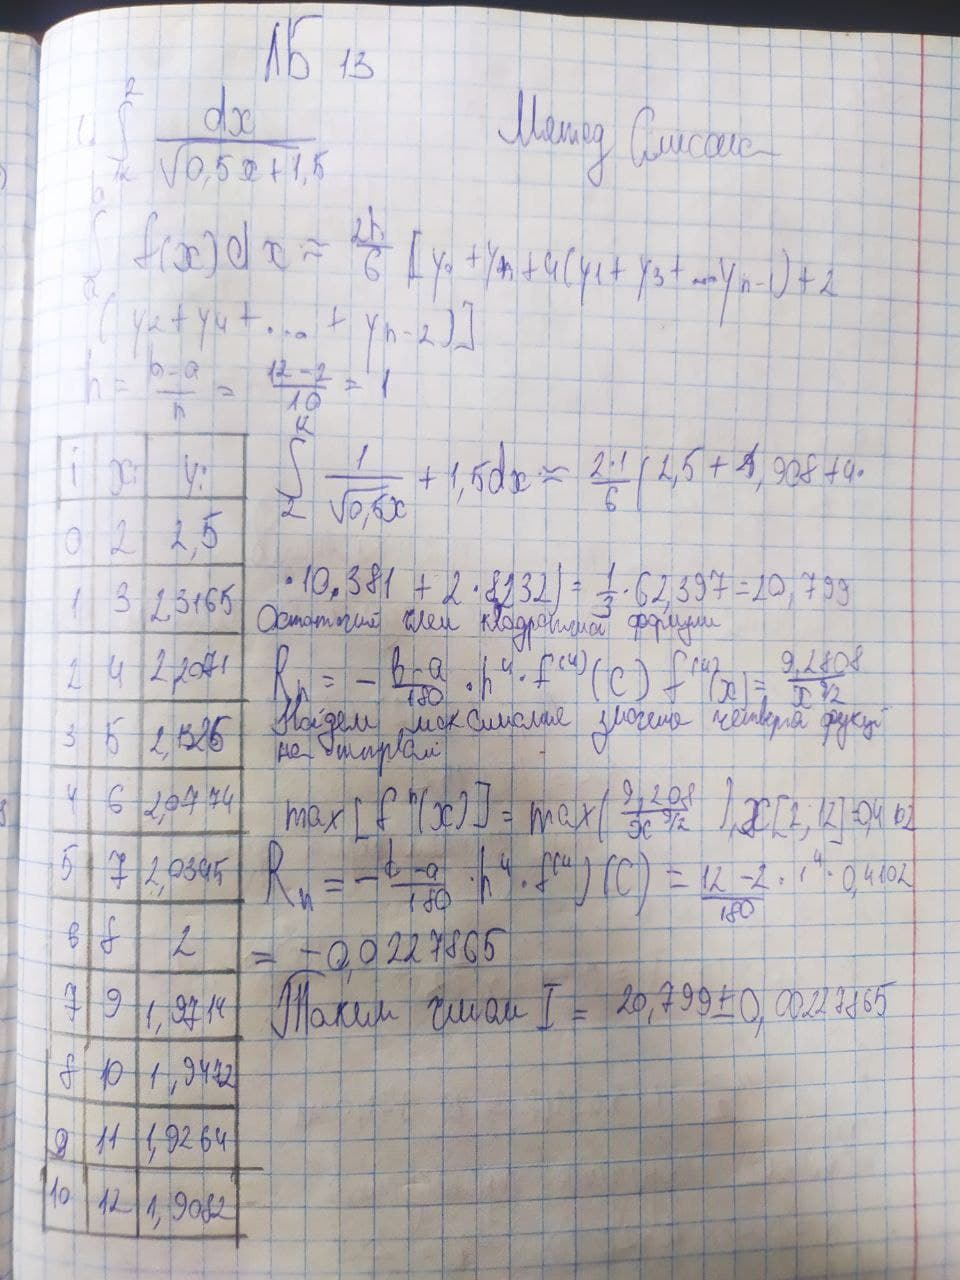 ЛБ 13
1. ∫ 2 12 dx / √0,5x+1,5
Метод Симсона
∫ a b f(x)dx ≈ 2h/6 [y0 + yn + 4(y1 + y3 + ... yn-1) + 2
(y2 + y4 + ... + yn-2)]
h = b-a/n = 12-2/10 = 1
i xi yi
0 2 2,5
1 3 2,3165
2 4 2,2071
3 5 2,1325
4 6 2,0774
5 7 2,0345
6 8 2
7 9 1,9714
8 10 1,9472
9 11 1,9264
10 12 1,9082
∫ 2 12 1/√0,5x + 1,5dx ≈ 2·1/6 (2,5 + 1,908 + 4·
·10.381 + 2·8232) = 1/3 · 62,397 = 20,799
Остаточий член квадратичной формули
Rn = - b-a/180 · h⁴ · f⁽⁴⁾(C) f⁽⁴⁾(x) = 9,2808/x^9/2
Найдем максимслае значение четверта фукций
на
max[fⁿ(x)] = max(9,2808/x^9/2), x[2,12] = 0,4102
Rn = - b-a/180 · h⁴ · f⁽⁴⁾(C) = 12-2/180 · 1⁴ · 0,4102
= -0,0227865
Таким чином I = 20,799 ± 0,00227865